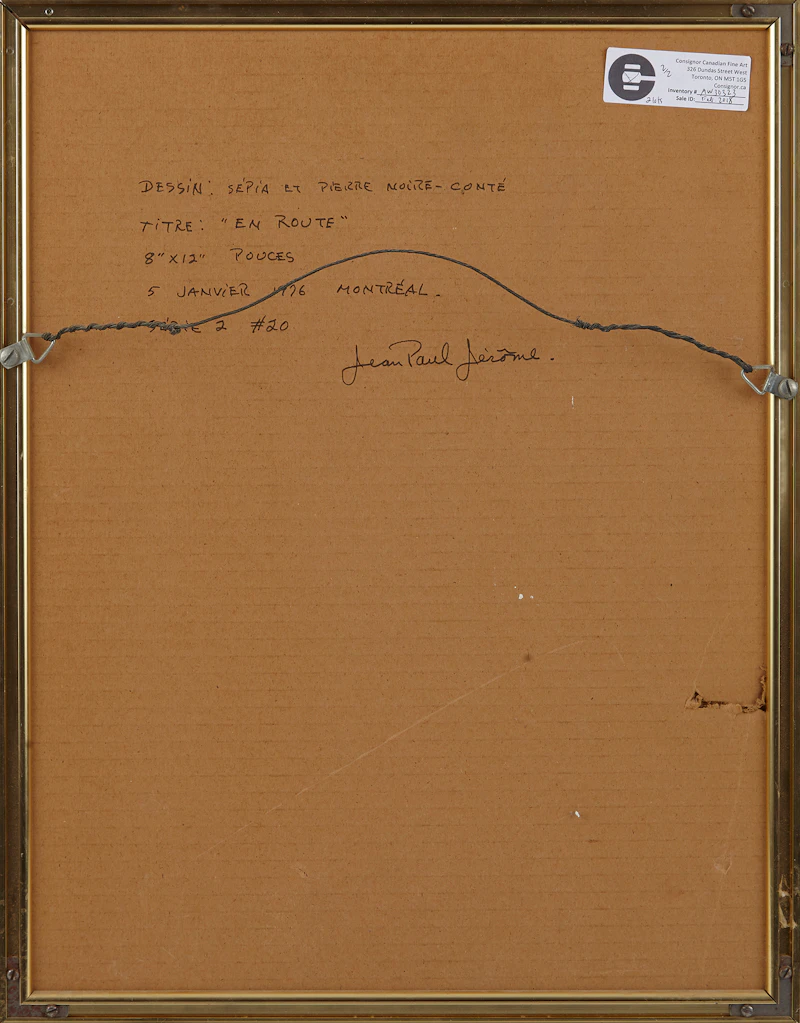 Consignor Canadian Fine Art
326 Dundas Street West
Toronto, ON M5T 1G5
Consignor.ca
Inventory #
Sale ID: Feb 2018
2/2
DESSIN: SÉPIA ET PIERRE NOIRE-CONTÉ
TITRE: "EN ROUTE"
8" X 12" POUCES
5 JANVIER MONTRÉAL.
SÉRIE 2 #20
Jean Paul Jérôme.